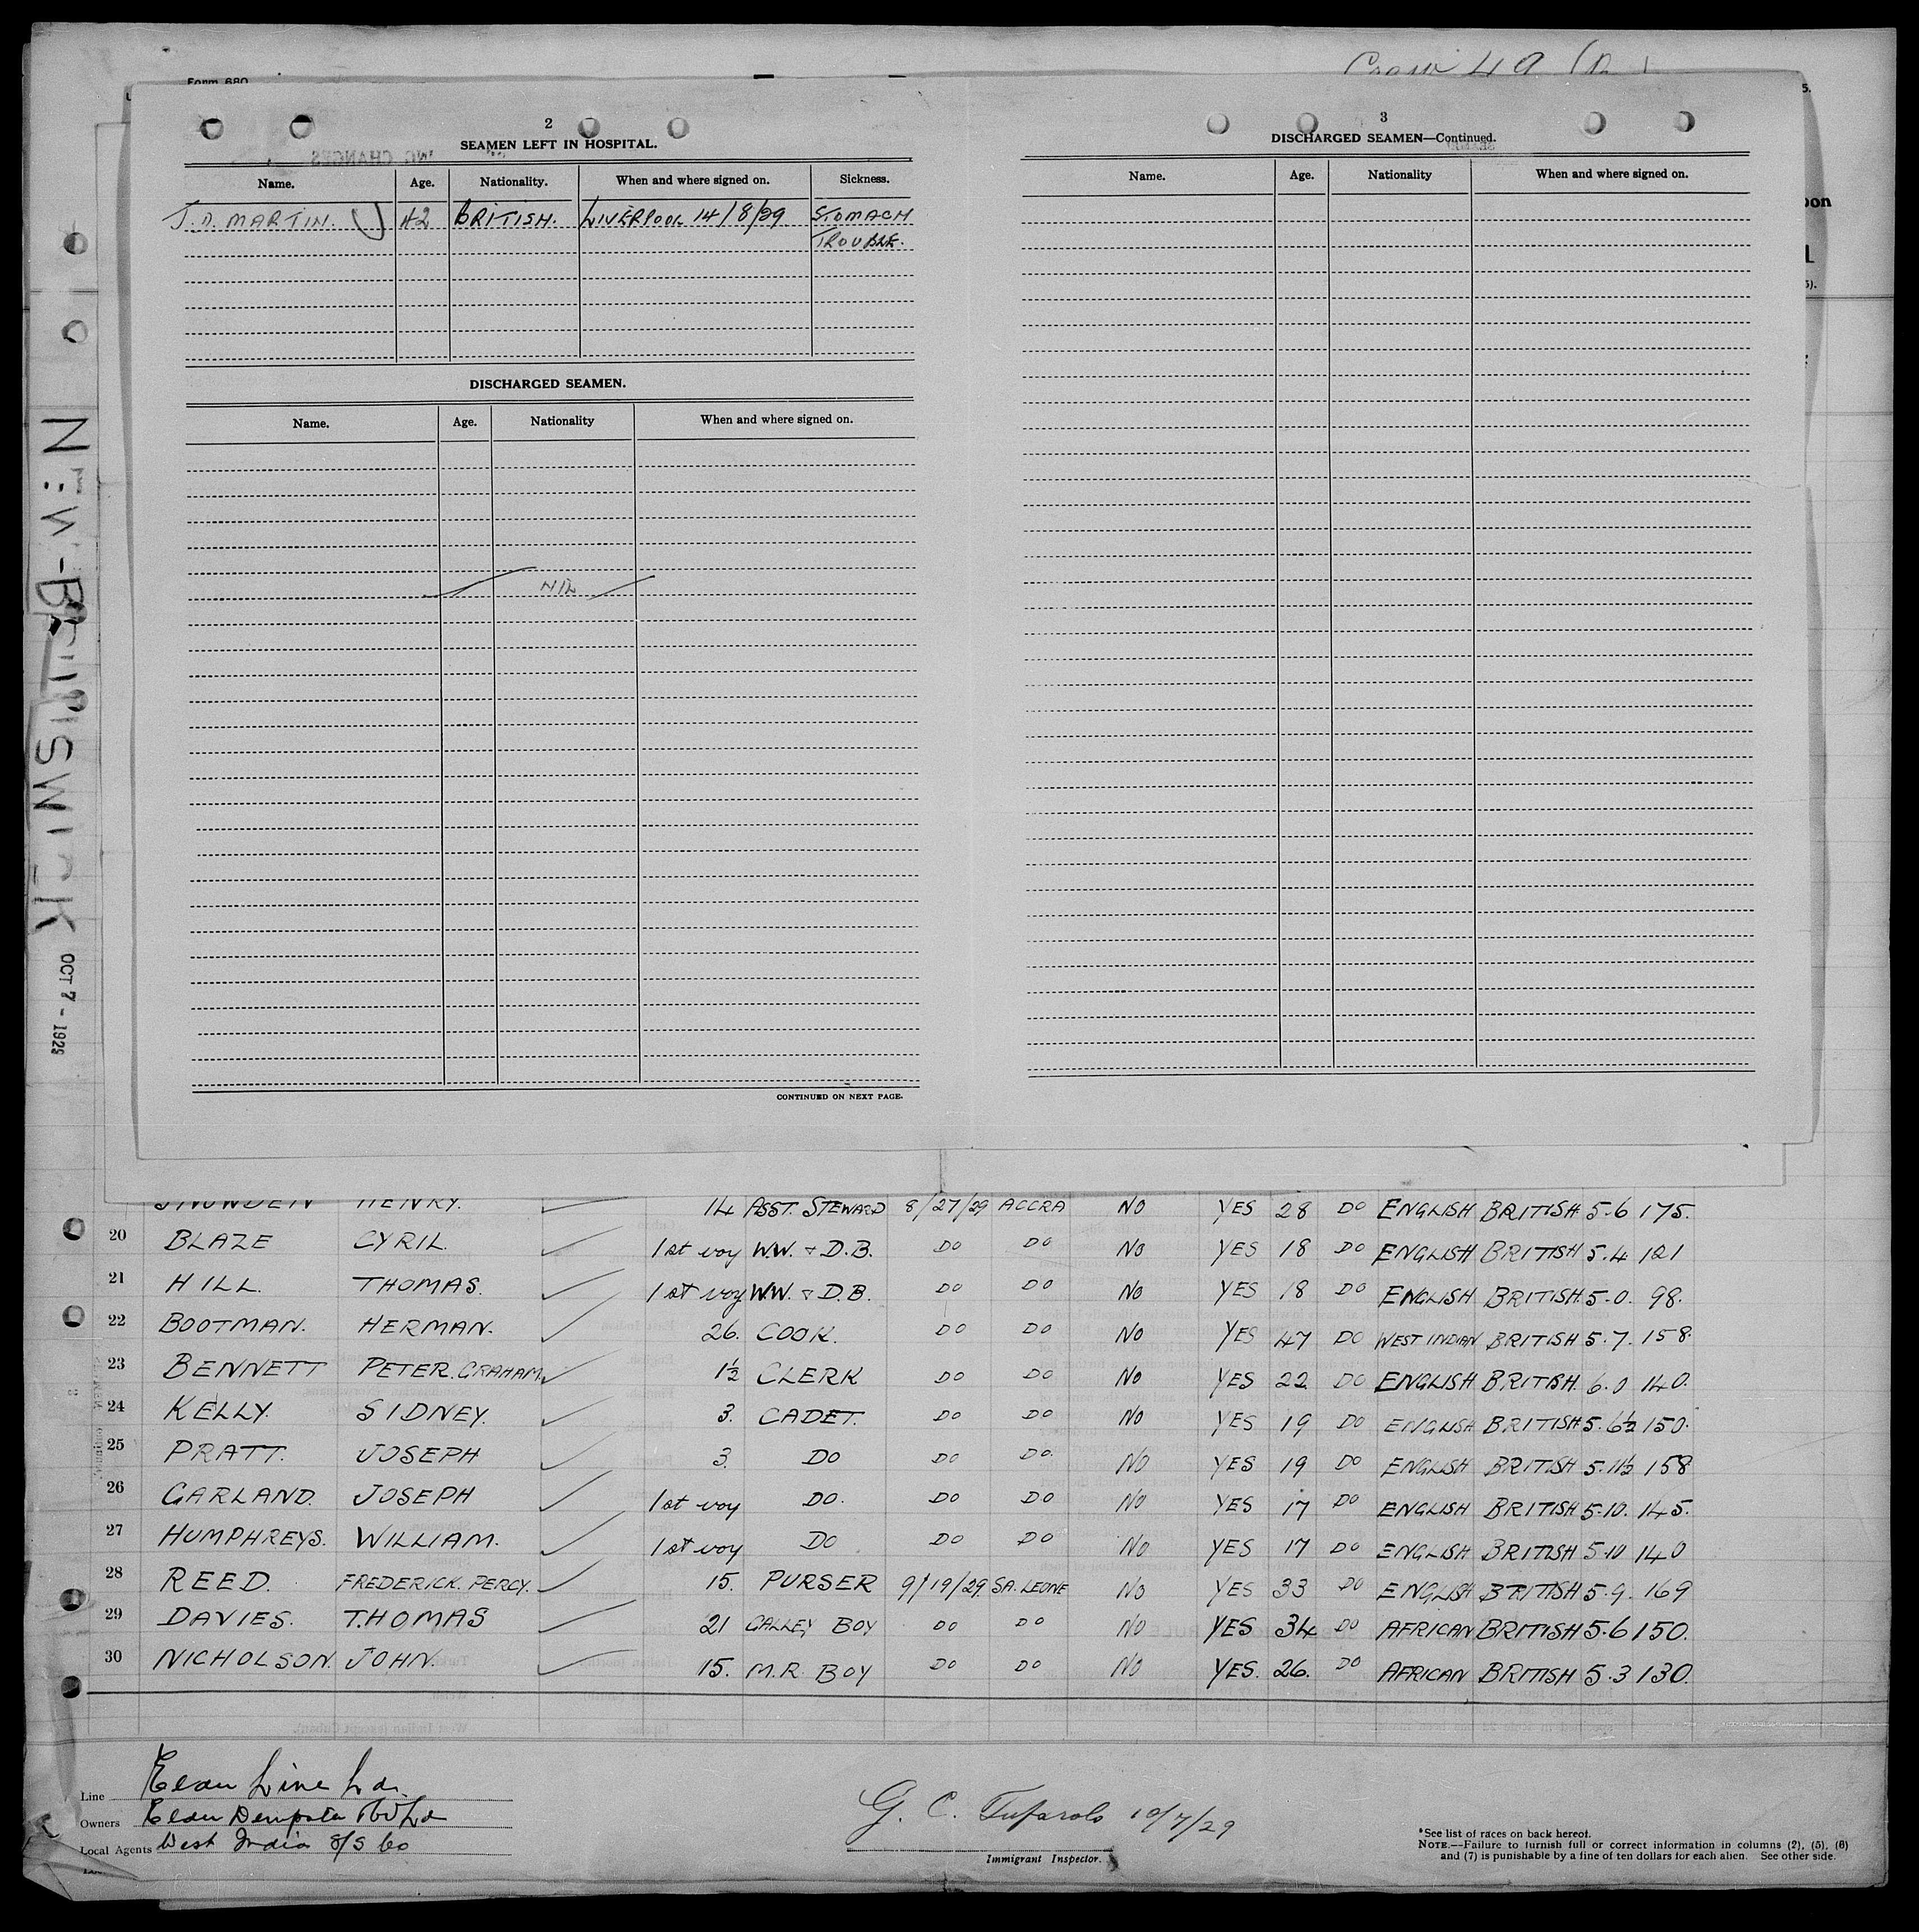 Form 680
2
SEAMEN LEFT IN HOSPITAL.
Name. Age. Nationality. When and where signed on. Sickness.
J.D. MARTIN. 42 BRITISH. LIVERPOOL 14/8/29 STOMACH
TROUBLE.
DISCHARGED SEAMEN.
Name. Age. Nationality When and where signed on.
NIL
CONTINUED ON NEXT PAGE.
3
DISCHARGED SEAMEN—Continued.
Name. Age. Nationality When and where signed on.
NEW-BRUNSWICK OCT 7 - 1929
SNOWDEN HENRY. 14 ASST. STEWARD 8/27/29 ACCRA NO YES 28 DO ENGLISH BRITISH 5.6 175.
20 BLAZE CYRIL. 1st voy W.W. & D.B. DO DO NO YES 18 DO ENGLISH BRITISH 5.4 121
21 HILL. THOMAS. 1st voy W.W. & D.B. DO DO NO YES 18 DO ENGLISH BRITISH 5.0. 98.
22 BOOTMAN. HERMAN. 26. COOK. DO DO NO YES 47 DO WEST INDIAN BRITISH 5.7. 158.
23 BENNETT PETER. GRAHAM. 1½ CLERK DO DO NO YES 22 DO ENGLISH BRITISH. 6.0 140.
24 KELLY. SIDNEY. 3. CADET. DO DO NO YES 19 DO ENGLISH BRITISH 5.6½ 150.
25 PRATT. JOSEPH 3. DO DO DO. NO YES 19 DO ENGLISH BRITISH 5.11½ 158
26 GARLAND. JOSEPH 1st voy DO. DO DO NO YES 17 DO ENGLISH BRITISH 5.10. 145.
27 HUMPHREYS. WILLIAM. 1st voy DO DO DO NO YES 17 DO ENGLISH BRITISH 5.10 140
28 REED. FREDERICK. PERCY. 15. PURSER 9/19/29 SA. LEONE NO YES 33 DO ENGLISH BRITISH 5.9. 169
29 DAVIES. THOMAS 21 GALLEY BOY DO DO NO YES 34 DO AFRICAN BRITISH 5.6 150.
30 NICHOLSON. JOHN. 15. M.R. BOY DO DO NO YES. 26. DO AFRICAN BRITISH 5.3 130.
Line Elder Line Ld.
Owners Elder Dempster & Co Ld
Local Agents West India S/S Co
G. C. 10/7/29
Immigrant Inspector.
*See list of races on back hereof.
NOTE.—Failure to furnish full or correct information in columns (2), (5), (6)
and (7) is punishable by a fine of ten dollars for each alien. See other side.